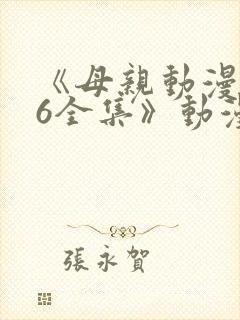 《母親動漫
6全集》動漫
張永賀